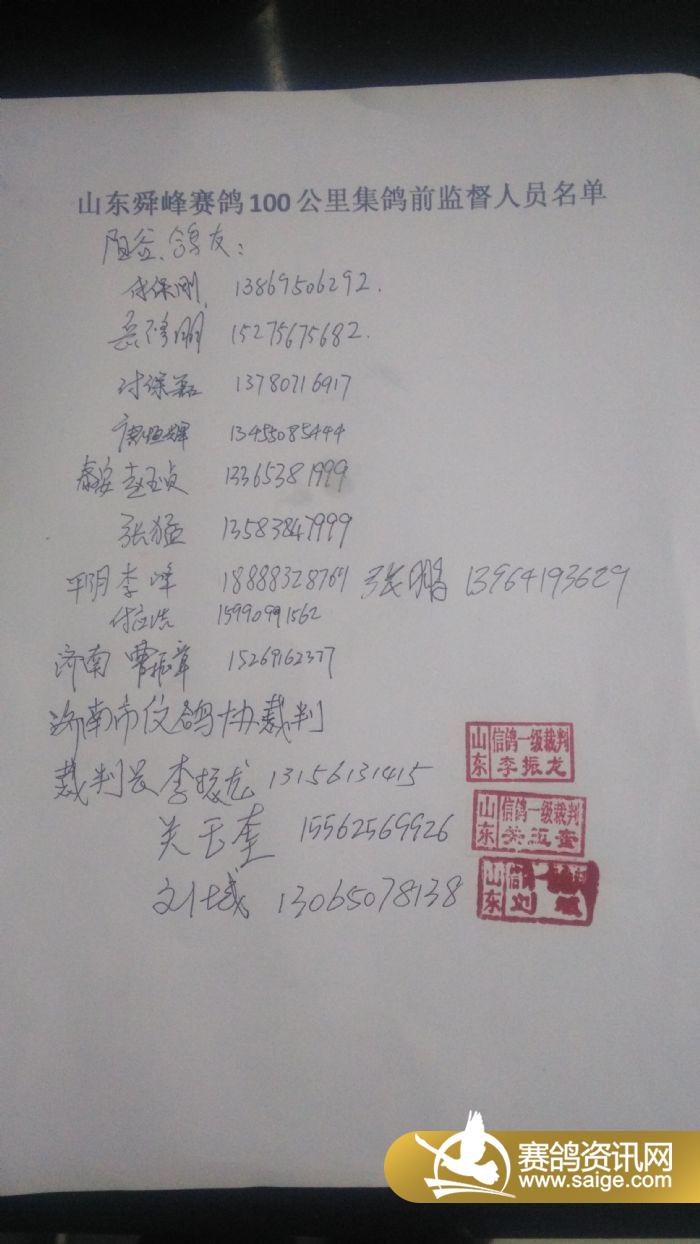 山东舜峰赛鸽100公里集鸽前监督人员名单
阳谷、鸽友：
付保刚 13869506292.
岳修朋 15275675682.
付保磊 13780716917
康恒辉 13455085444
泰安 赵玉贞 13365381999
张猛 13583847999
平阴 李峰 18888328764 张鹏 13964193629
15990991562
济南 曹振章 15269162377
济南市信鸽协裁判
裁判长 李振龙 13156131415
关玉奎 15562569926
刘 13065078138
山东 信鸽一级裁判 李振龙
山东 信鸽一级裁判
山东 信鸽 刘
赛鸽资讯网
www.saige.com